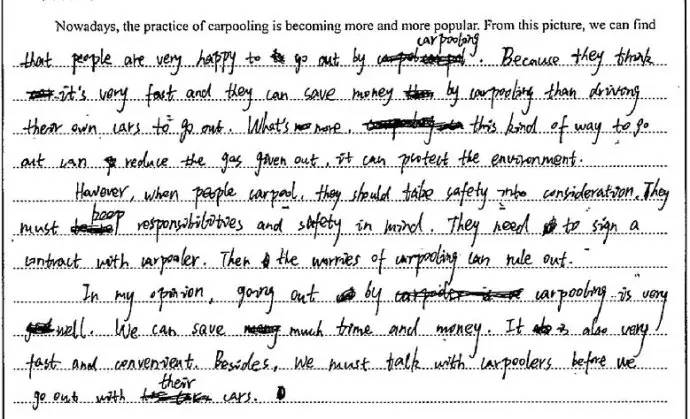 Nowadays, the practice of carpooling is becoming more and more popular. From this picture, we can find
that people are very happy to go out by carpooling. Because they think
it's very fast and they can save money by carpooling than driving
their own cars to go out. What's more, this kind of way to go
out can reduce the gas given out, it can protect the environment.
However, when people carpool, they should take safety into consideration. They
must keep responsibilities and safety in mind. They need to sign a
contract with carpooler. Then the worries of carpooling can rule out.
In my opinion, going out by carpooling is very
well. We can save much time and money. It is also very
fast and convenient. Besides, we must talk with carpoolers before we
go out with their cars.